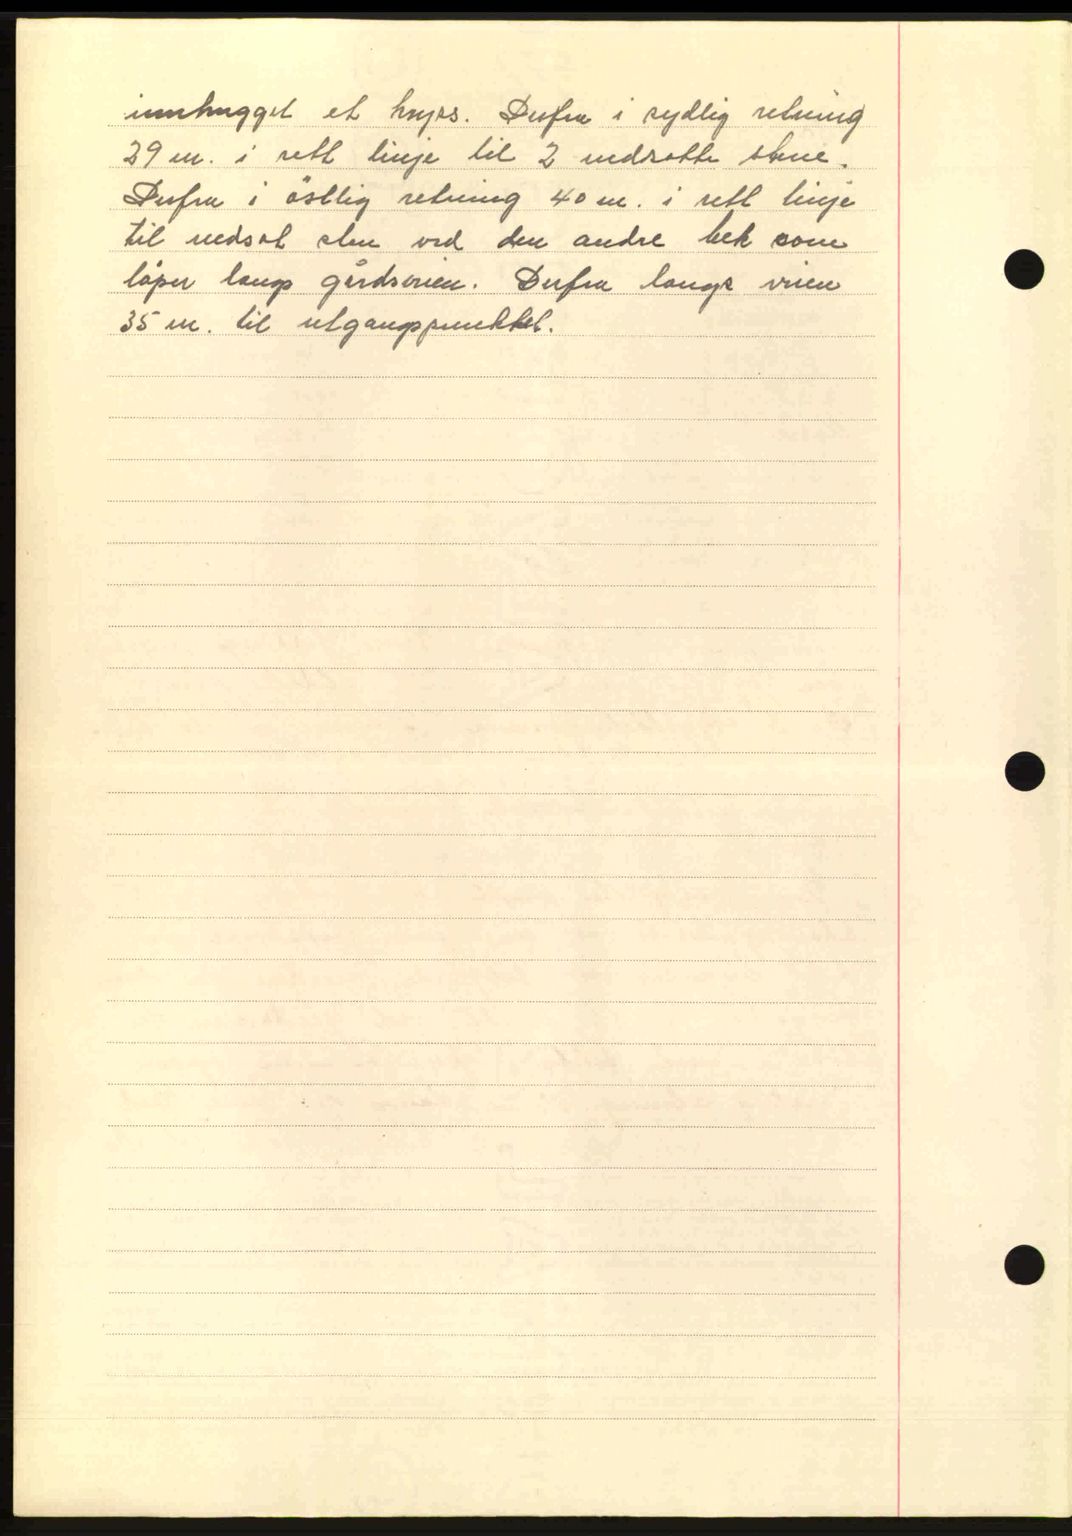 innhugget et kryss. Derfra i sydlig retning
29 m. i rett linje til 2 nedsatte stene.
Derfra i östlig retning 40 m. i rett linje
til nedsat sten ved den andre bek som
löper langs gårdsveien. Derfra langs veien
35 m. til utgangspunktet.